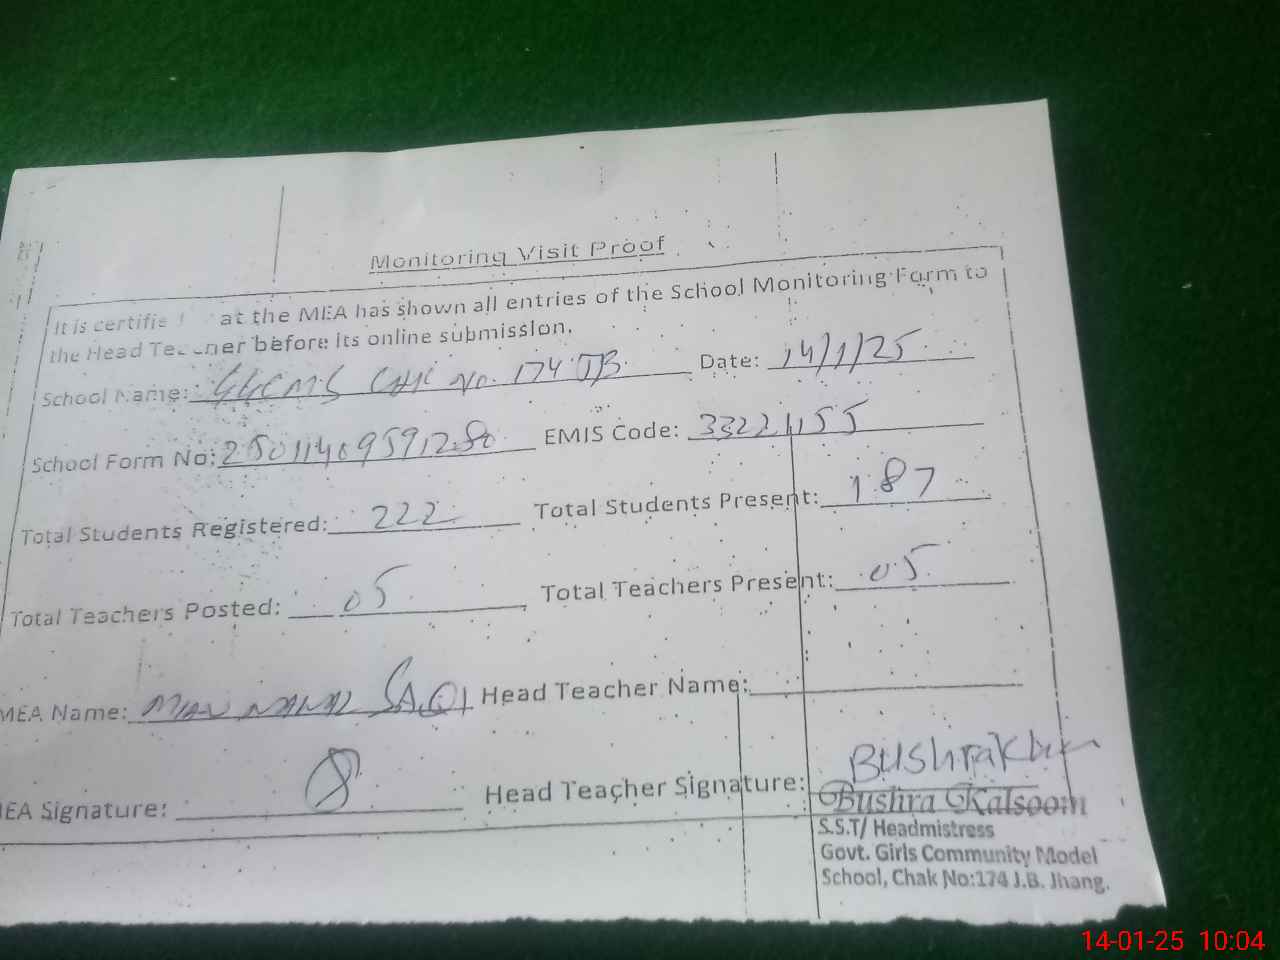 Monitoring Visit Proof
It is certifie at the MEA has shown all entries of the School Monitoring Form to
the Head Teacher before its online submission.
School Name: GGCMS CHK No. 174 JB Date: 14/1/25
School Form No: EMIS Code: 33221155
Total Students Registered: 222 Total Students Present: 187
Total Teachers Posted: 05 Total Teachers Present: 05
MEA Name: MIAN SAQI Head Teacher Name:
MEA Signature: Head Teacher Signature: Bushra
Bushra Kalsoom
S.S.T/ Headmistress
Govt. Girls Community Model
School, Chak No:174 J.B. Jhang.
14-01-25 10:04